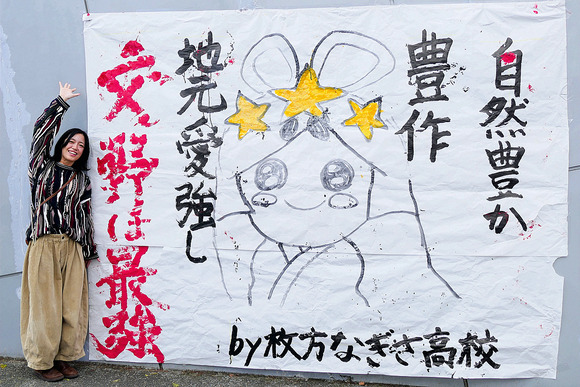 自然豊か
豊作
地元愛強し
交野は最強
by枚方なぎさ高校